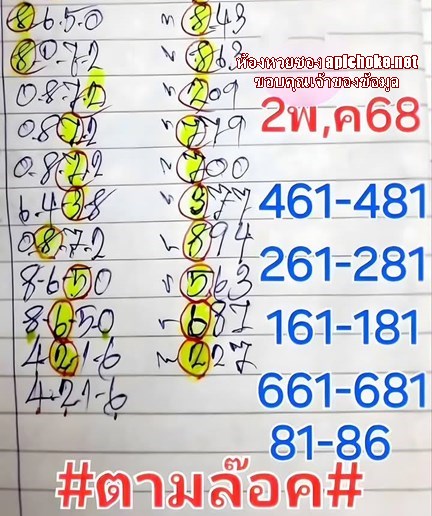 8-6-5-0 น 843
8-0-7-2 น 863
ห้องหวยซอง apichoke.net
ขอบคุณเจ้าของข้อมูล
0-8-7-2 น 209
2พ,ค68
0.8.7.2 น 779
0.8.7.2 น 700
6-4-3-8 น 377
461-481
0.8.7.2 น 894
261-281
8-6-5-0 น 563
8-6-5-0 น 687
161-181
4-2-1-6 น 227
4-2-1-6
661-681
81-86
#ตามล๊อค#